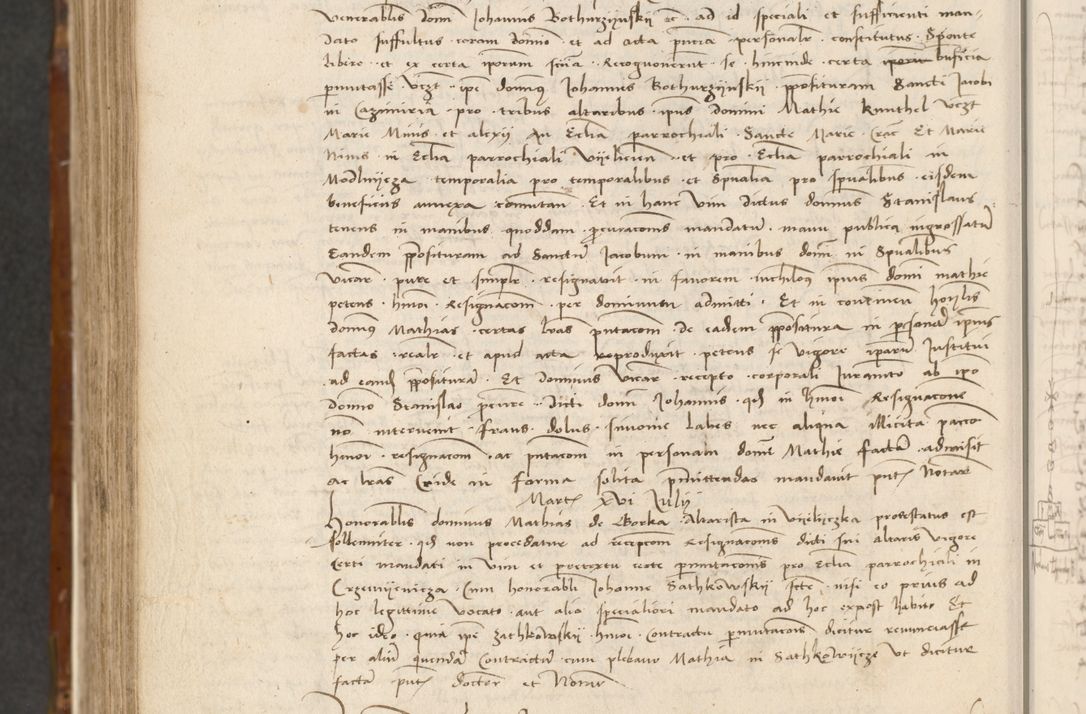 venerablis domini Johannis Bothurzijnskij etc. ad id speciali et sufficienti man-
dato suffultus coram domino et ad acta pncia personalr constitutus Sponte
libero et ex certa ipsorum scia Recognoverunt se hincinde certa bnficia
pmutasse vczt ipe domnus Johannes Bothurzijnskij pposituram Sancti Jacobi
in Cazimiria pro tribus altaribus ipius domini Mathie Knuthel vczt
Marie Minis et alexij In Ecclia parrochiali Sancte Marie Crac Et Marie
Nivis in Ecclia parrochiali et pro Ecclia parrochiali in
Modlnijcza temporalia pro temporalibus et spualia pro spualibus eisdem
beneficiis annexa comutan Et in hanc vim dictus domnus Stanislaus
tenens in manibus quoddam procuracionis mandatum manu publica ingrossatum
Eandem pposituram ad Sanctum Jacobum in manibus domini in spualibus
vicarii pure et simplr resignavit in favorem ipius domini mathie
petens hmoi Resignacionem per dominum admitti Et in continenti
domnus Mathias certas lras pntacionis de eadem ppositura in personam ipius
factas realr et apud acta reproduxit petens se vigore iparum Institui
ad eandem pposituram Et dominus vicarius recepto corporali Juramento ab ipo
domino Stanislao dicti domini Johannis qd in hmoi Resignacione
non intervenit fraus dolus simonie labes nec aliqua illicita paccio
hmoi resignacionem ac pntacionem in personam domini Mathie factam admisit
ac lras Cride in forma solita pmittendas mandavit pnte Notario
Martis xvi Julij
Honorablis dominus Mathias de Gorka Altarista in vijelijczka protestatus est
sollemniter qd non procedatur ad recepcionem Resignacionis dicti sui altaris vigore
certi mandati in vim et pretextu certe pmutacionis pro Ecclia parrochiali in
Crzemijenicza Cum honorabli Johanne Sathkowskij fcte nisi eo prius ad
hoc legittime vocato aut alio specialiori mandato ad hoc expost habito Et
hoc ideo quia ipe Zathkowskij hmoi Contractu pmutacionis dicitur renunciasse
per alium quendam Contractum cum plebano Mathia in Sathkowijcze vt dicitur
factum pnte doctore et Notario